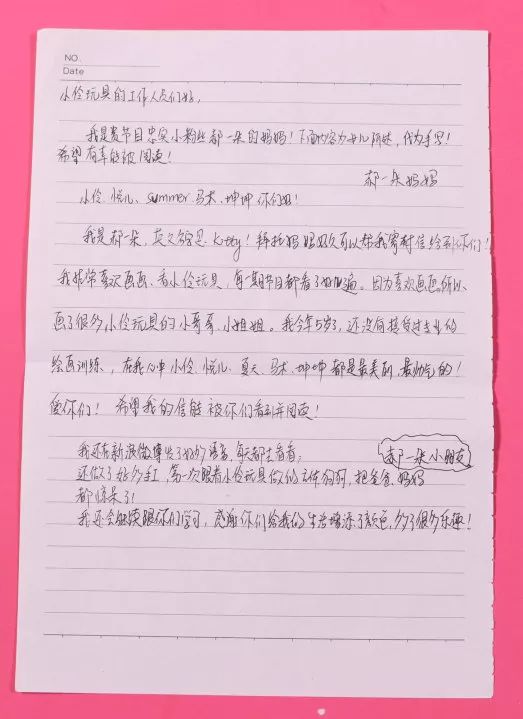 NO.
Date
小伶玩具的工作人员们好,
我是贵节目忠实小粉丝郝一朵的妈妈!下面内容为女儿所述,代为手写!
希望有幸能被阅读!
郝一朵妈妈
小伶、悦儿、summer、马木、坤坤你们好!
我是郝一朵,英文名字是Kitty!拜托妈妈好久可以帮我寄封信给到你们!
我非常喜欢画画、看小伶玩具,每一期节目都看了好几遍。因为喜欢画画所以
画了很多小伶玩具的小哥哥、小姐姐。我今年5岁了,还没有接受过专业的
绘画训练,在我心中小伶、悦儿、夏天、马木、坤坤都是最美丽、最帅气的!
爱你们!希望我的信能被你们看到并阅读!
我还在新浪微博发了好多留言,每天都去看看;
郝一朵小朋友
还做了好多手工,第一次跟着小伶玩具做的立体狗狗,把爸爸、妈妈
都惊呆了!
我还会继续跟你们学习,感谢你们给我的生活增添了颜色,多了很多乐趣!